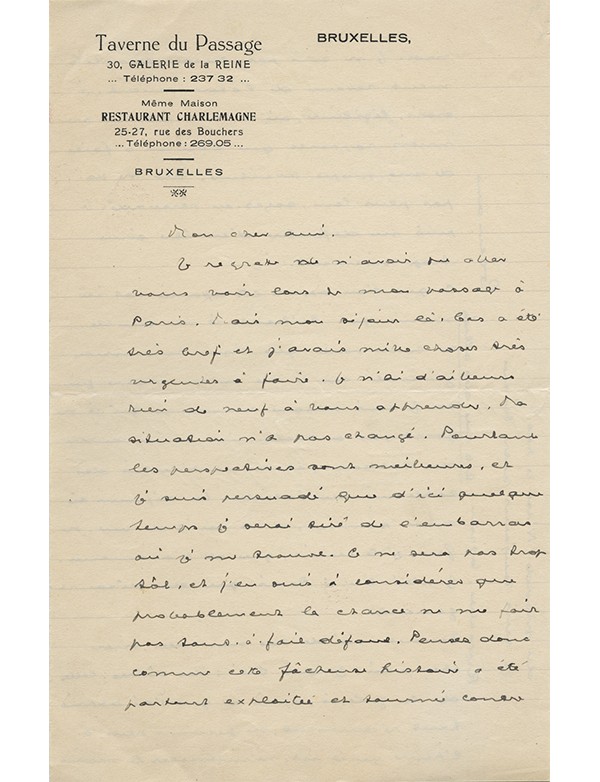 Taverne du Passage
30, GALERIE de la REINE
... Téléphone : 237 32 ...
Même Maison
RESTAURANT CHARLEMAGNE
25-27, rue des Bouchers
... Téléphone : 269.05 ...
BRUXELLES
BRUXELLES,
Mon cher ami.
Je regrette de n'avoir pu aller
vous voir lors de mon passage à
Paris. Mais mon séjour là-bas a été
très bref et j'avais mille choses très
urgentes à faire. Je n'ai d'ailleurs
rien de neuf à vous apprendre. Ma
situation n'a pas changé. Pourtant
les perspectives sont meilleures, et
je suis persuadé que d'ici quelque
temps je serai tiré de l'embarras
où je me trouve. Ce ne sera pas trop
tôt, et j'en suis à considérer que
probablement la chance ne me fait
pas tout-à-fait défaut. Pensez donc
comme cette fâcheuse histoire a été
partout exploitée et tourné contre